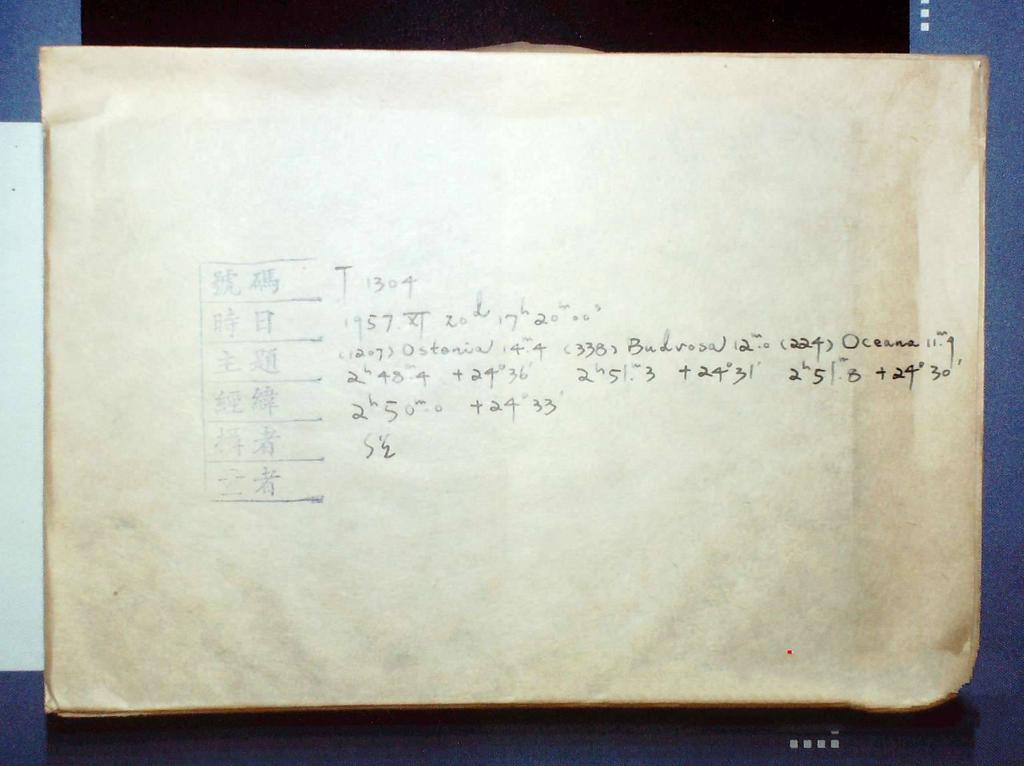 號碼 T 1304
時日 1957 XI 20ᵈ 17ʰ 20ᵐ 00ˢ
主題 (1207) Ostenia 14ᵐ.4 (338) Budrosa 12ᵐ.0 (224) Oceana 11ᵐ.9
2ʰ 48ᵐ.4 +24°36′ 2ʰ 51ᵐ.3 +24°31′ 2ʰ 51ᵐ.8 +24°30′
經緯 2ʰ 50ᵐ.0 +24°33′
攝者
者